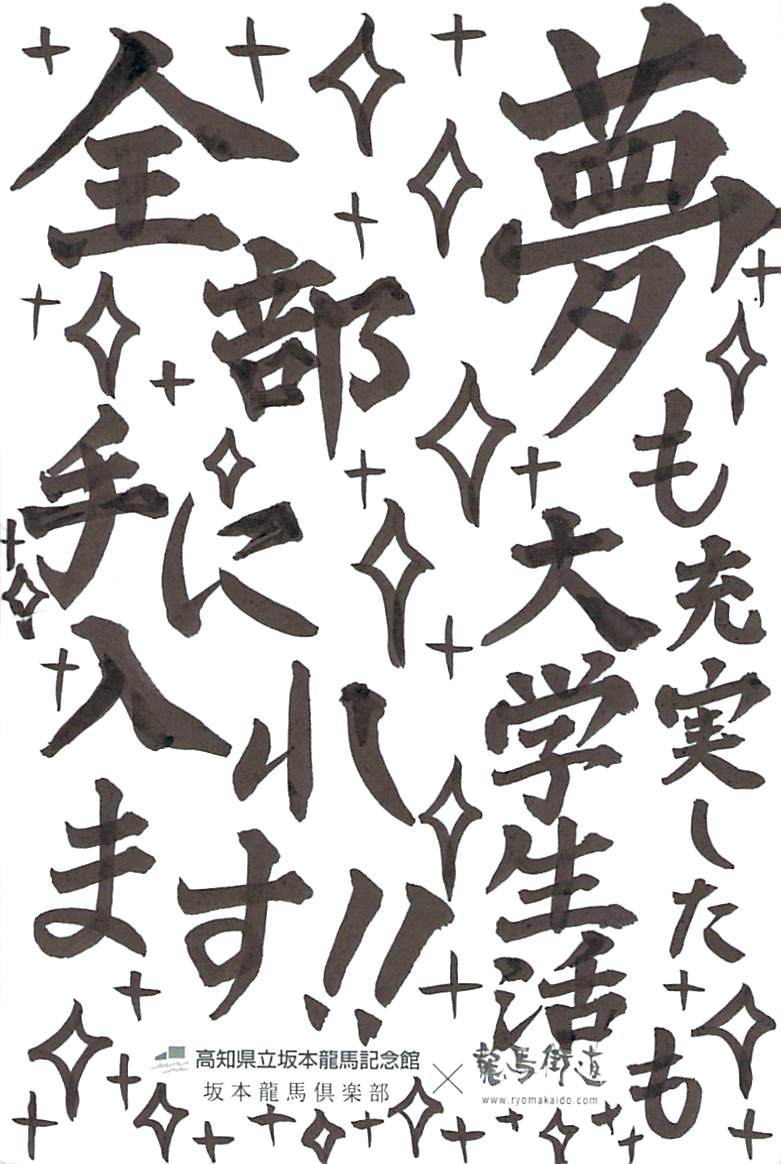 夢も充実した
大学生活も
全部
手に入れ
ます!!
高知県立坂本龍馬記念館
坂本龍馬倶楽部
×
龍馬街道
www.ryomakaido.com